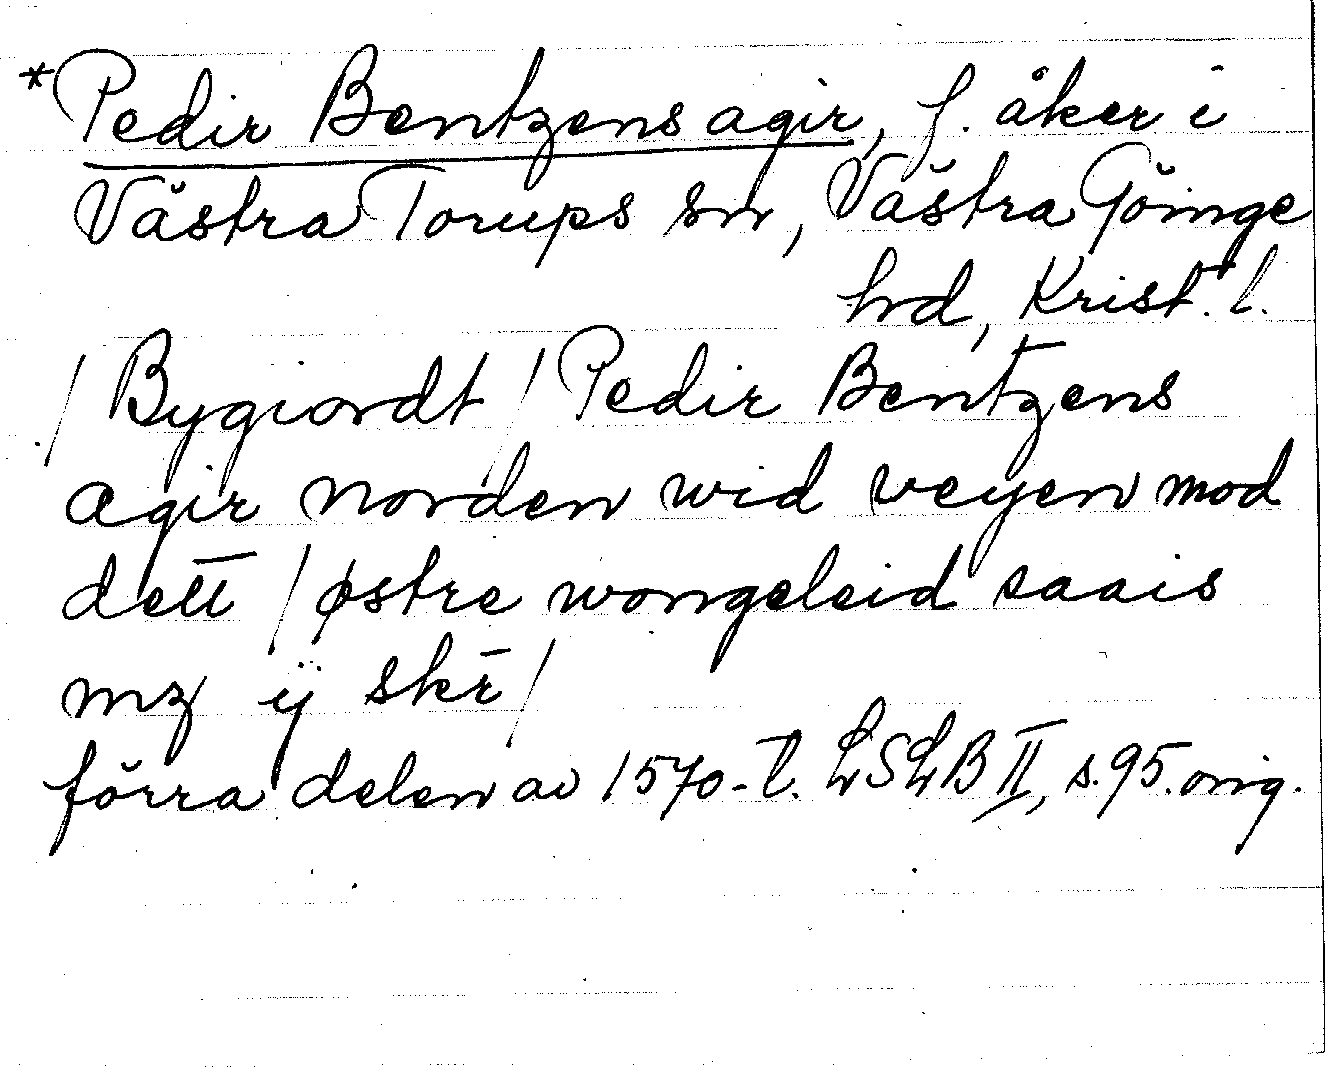 *Pedir Bentzens agir, f. åker i
Västra Torups sn, Västra Göinge
hd, Krist. l.
/ Bygiordt / Pedir Bentzens
agir norden wid veyen mod
dett / østre wongeleid saais
mz ÿ skr̄ /
förra delen av 1570-t. LSLB II, s. 95. orig.